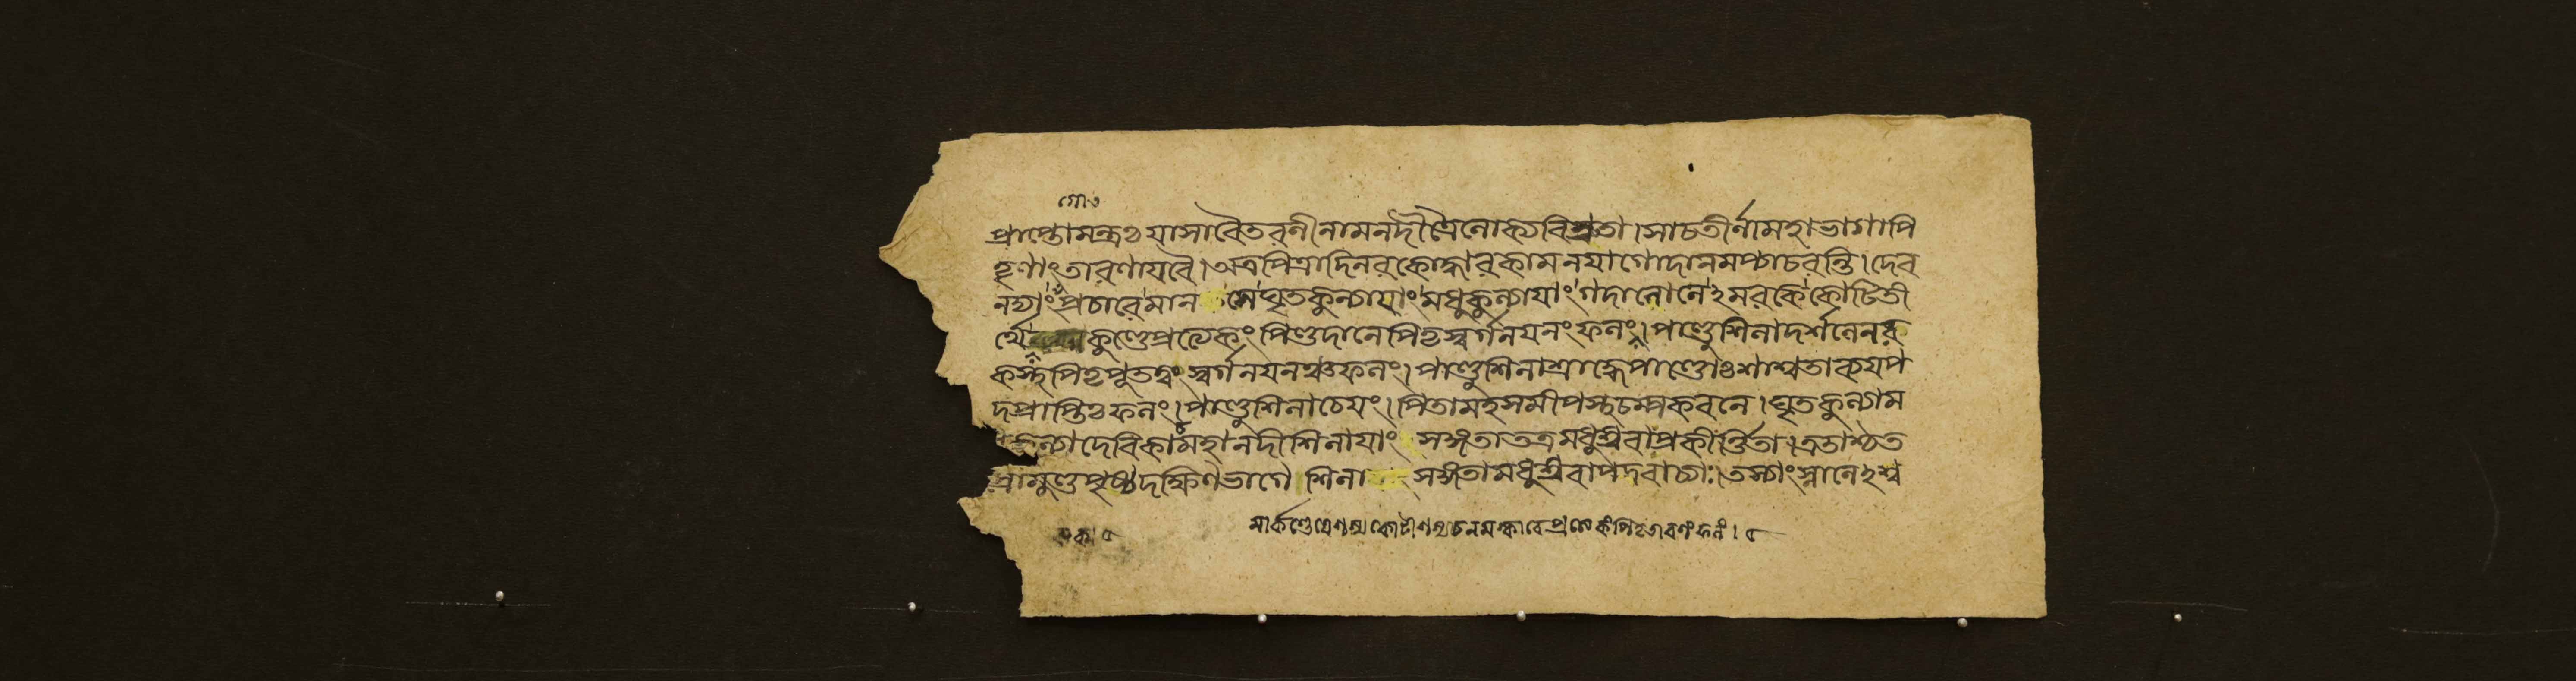 গো৩
প্রাপ্তোমন্ত্রঃ যাসাবৈতরণীনামনদীত্রৈলোক্যবিশ্রুতা।সাচতীর্ণামহাভাগাপি
তৄণাংতারণাযবৈ।অত্রপিত্রাদিনরকোদ্ধারকামনযাগোদানমপ্যাচরন্তি।দেব
নদ্যাংপ্রচারেমান সেঘৃতকুল্যাযাংমধুকুল্যাযাংগদালোলেঽমরকেকোটিতী
র্থে কুণ্ডেপ্রত্যেকংপিণ্ডদানেপিতৃস্বর্গনযনংফলং।পাণ্ডুশিলাদর্শনেনর
কস্থপিতৃপূতত্বংস্বর্গনযনঞ্চফলং।পাণ্ডুশিলাশ্রাদ্ধেপাণ্ডোঃশাশ্বতাক্ষযপ
দপ্রাপ্তিঃফলং।পাণ্ডুশিলাচেযং।পিতামহসমীপস্থচম্পকবনে।ঘৃতকুল্যাম
কুল্যাদেবিকামহানদীশিলাযাং সঙ্গতাতত্রমধুশ্রবাপ্রকীর্ত্তিতা।
মুণ্ডপৃষ্ঠদক্ষিণভাগে শিলা সঙ্গতামধুশ্রবাপদবাচ্যা।তস্যাংস্নানেঽশ্ব
মার্কণ্ডেযেশ কোটীশ নমস্কারেপ্রত্যেকংপিতৃতারণংফলং।৫